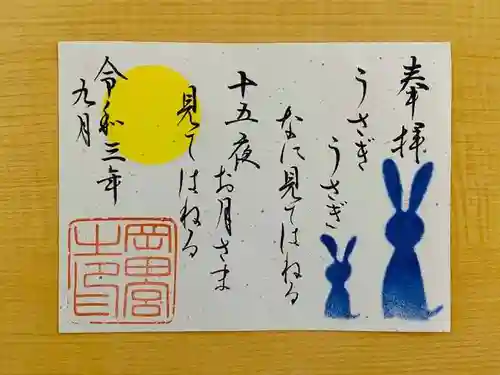 奉拝
うさぎ
うさぎ
なに見てはねる
十五夜
お月さま
見てはねる
令和三年
九月